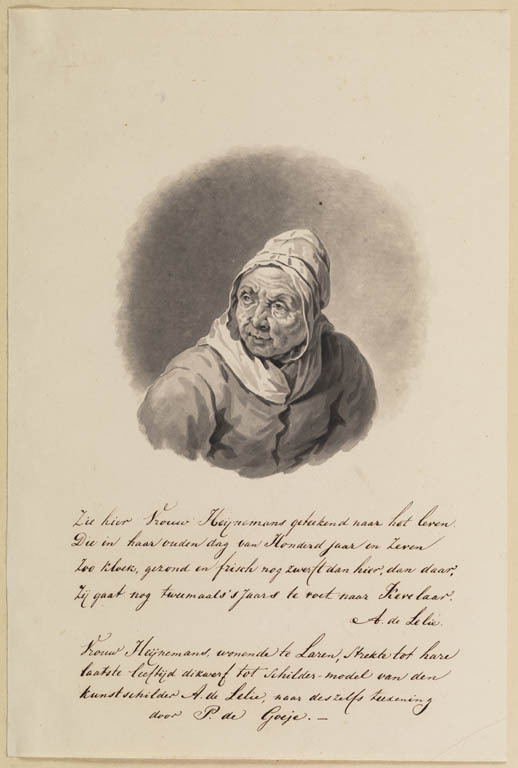 Zie hier Vrouw Heijnemans geteekend naar het leven.
Die in haar ouden dag van Honderd jaar en Zeven
Zoo kloek, gezond en frisch nog zwerft dan hier, dan daar,
Zij gaat nog tweemaal 's Jaars te voet naar Kevelaar.
A. de Lelie.
Vrouw Heijnemans, wonende te Laren, strekte tot hare
laatste leeftijd dikwerf tot schilder-model van den
kunstschilder A. de Lelie, naar deszelfs teekening
door P. de Goeje. —